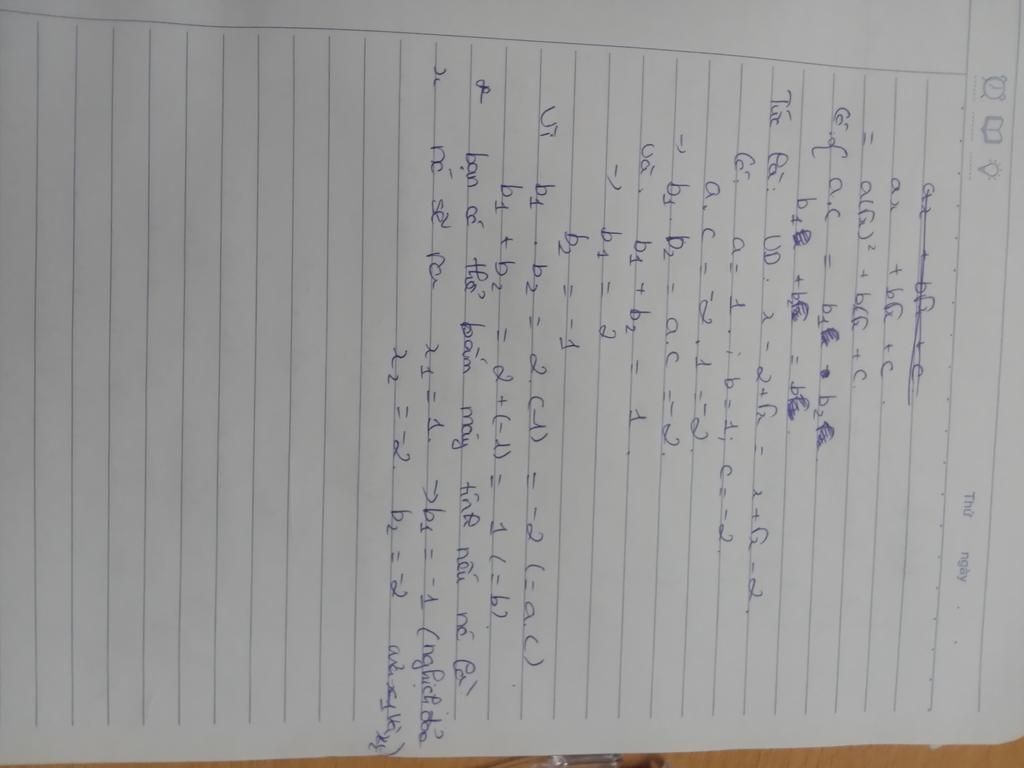 Thứ ngày
ax + b√x + c
ax + b√x + c
= a(√x)² + b√x + c
Có: { a.c = b1 . b2
b1 + b2 = b
Tức là: VD: x - 2 + √x = x + √x - 2
Có: a = 1 ; b = 1; c = -2
a. c = -2 . 1 = -2
→ b1 . b2 = a.c = -2
và b1 + b2 = 1
→ b1 = 2
b2 = -1
Vì b1 . b2 = 2.(-1) = -2 (= a.c)
b1 + b2 = 2 + (-1) = 1 (= b)
bạn có thể bấm máy tính nếu nó là
x nó sẽ ra x1 = 1. → b1 = -1 (nghịch đảo
x2 = -2. b2 = 2